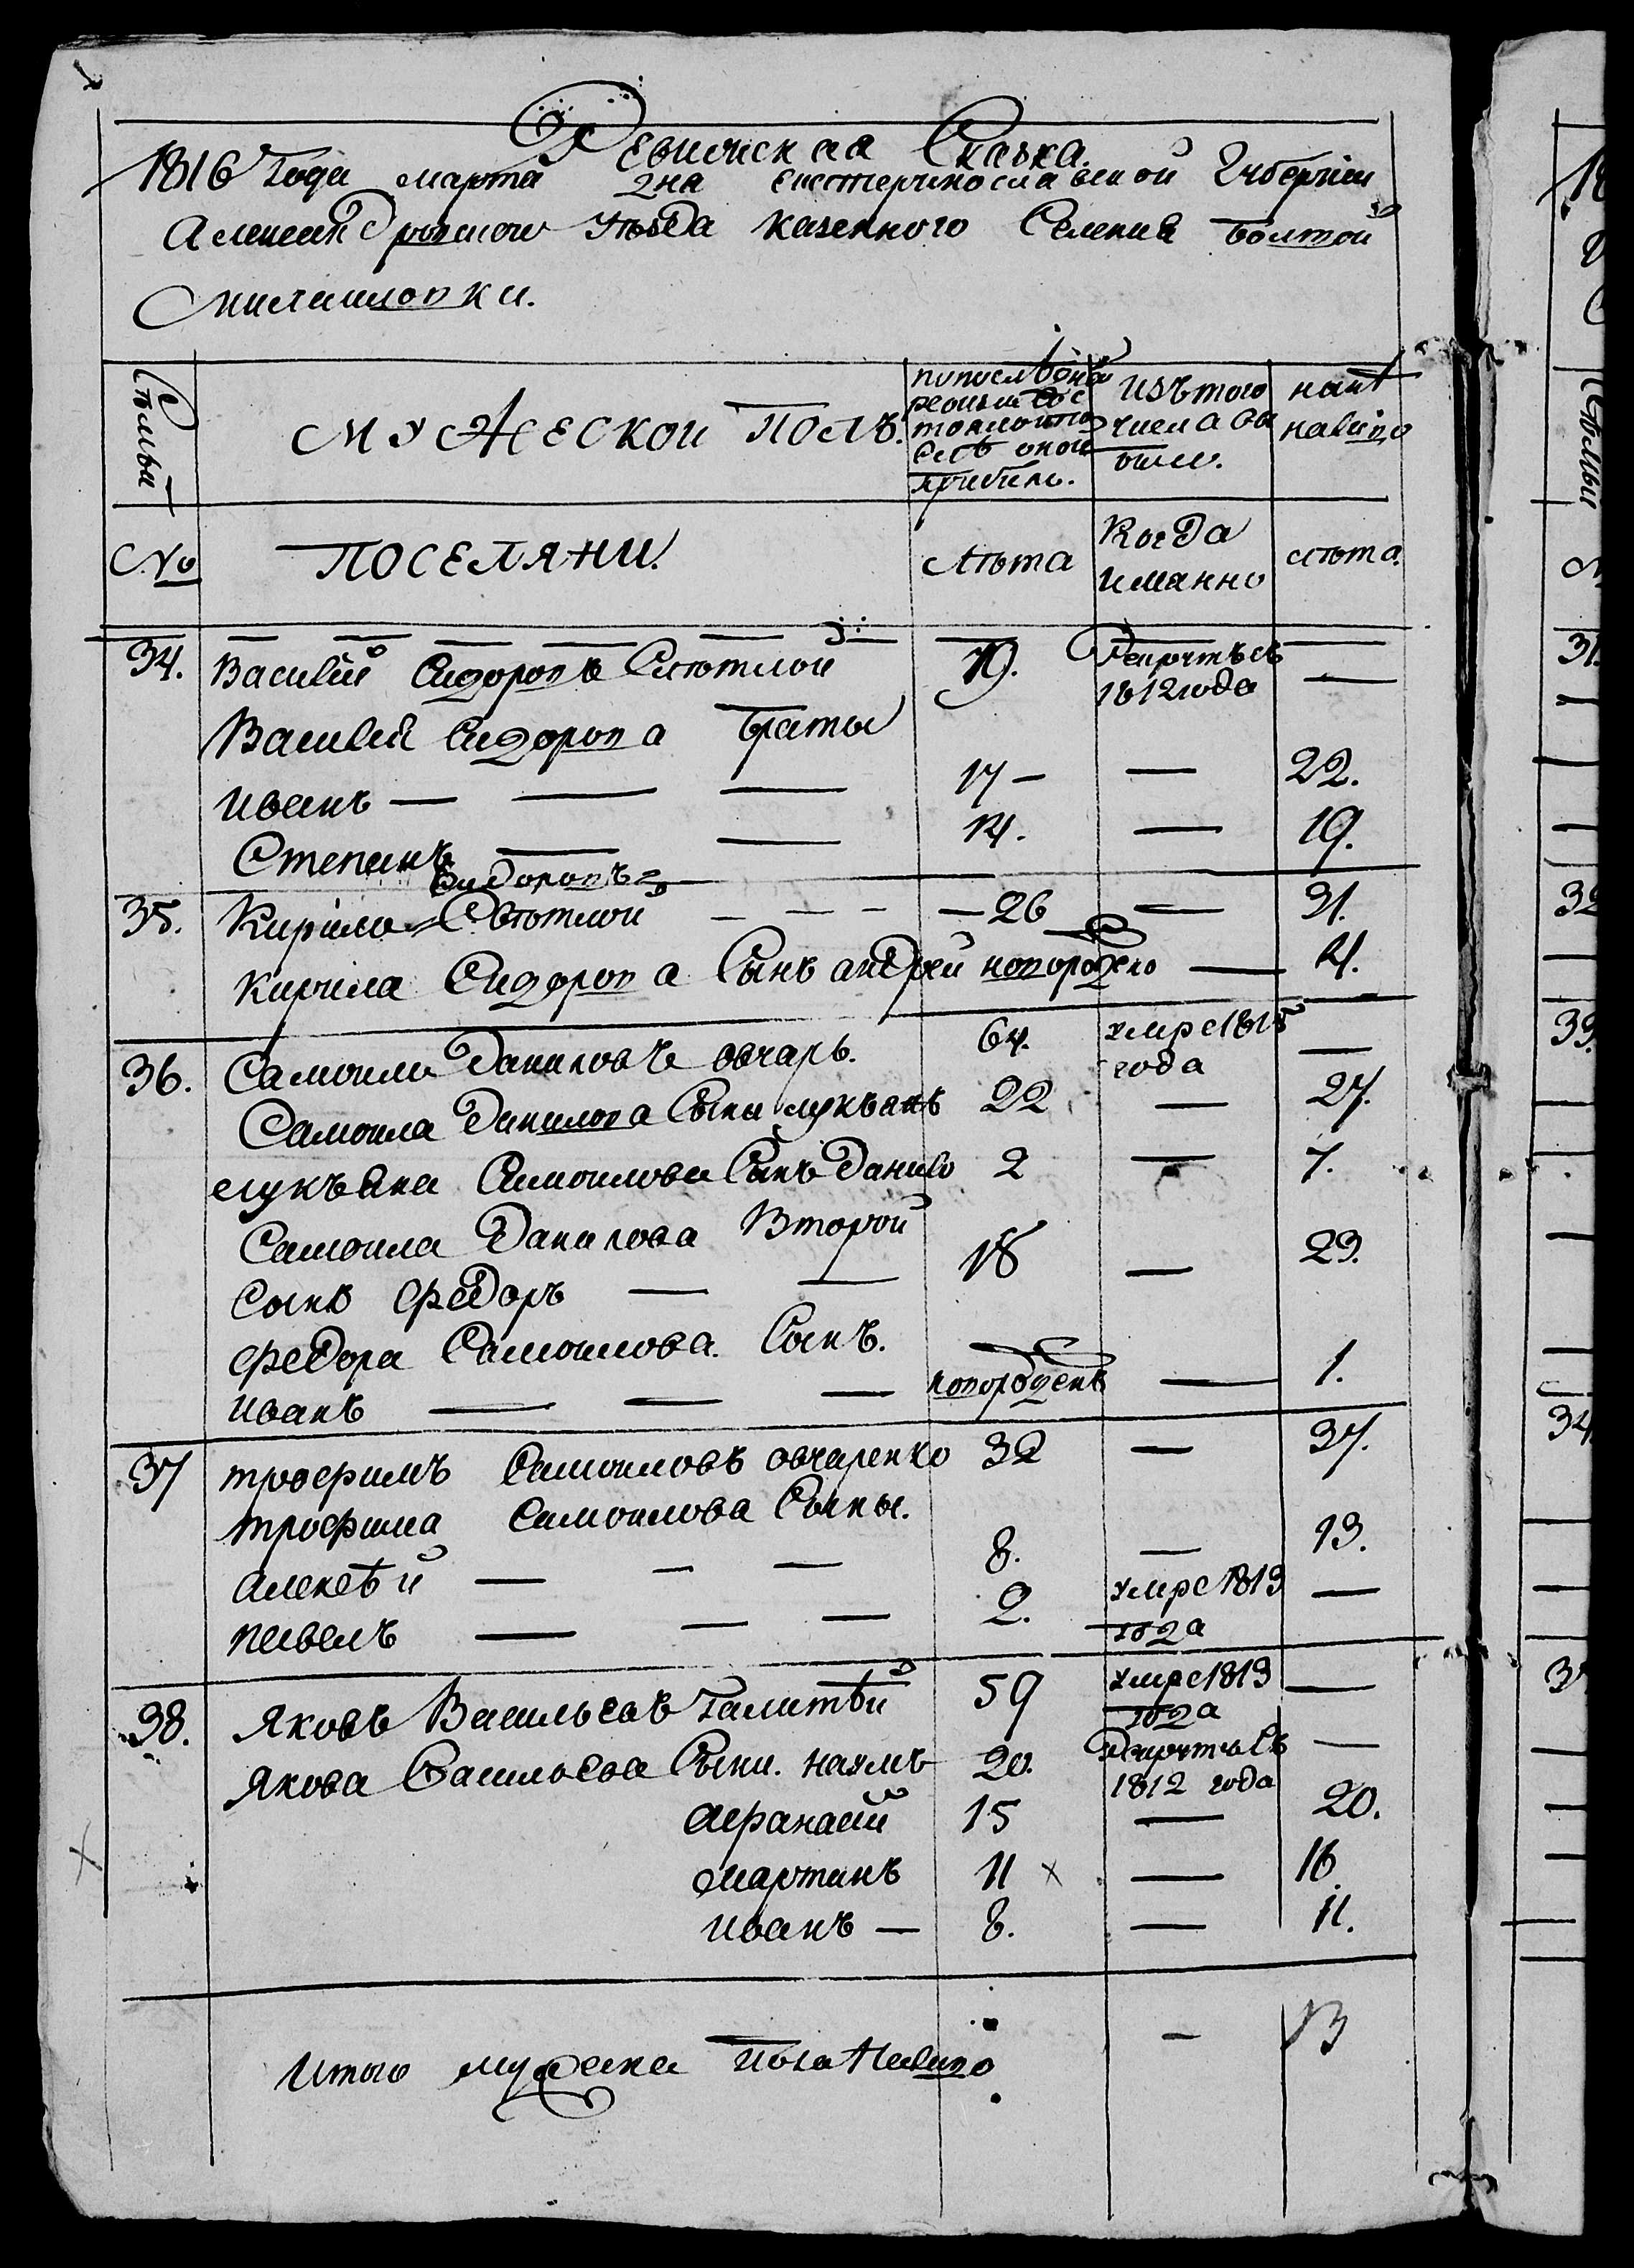 Ревижская Сказка.
1816 года марта дня екатеринославской Губернии
Александровского уѣзда казенного Селения болшой
Михайловки.
Сѣмьи
МУЖЕСКОЙ ПОЛЪ.
попослѣдней ревизіи состояло и после оной прибыло.
Изъ того числа выбыло.
налицо
№
ПОСЕЛЯНИ.
лѣта
Когда имянно
лѣта.
34. Василій Сидоровъ Свѣтлой 19. 1812 года —
Василія Сидорова браты
иванъ — — — 17 — — 22.
Степанъ — — 14. — 19.
35. Кирило Сидоровъ Свѣтлой — — — 26 — 31.
Кирила Сидорова Сынъ андрей новорождено — 4.
36. Самоило Даниловъ овчарь. 64. умре 1815 года —
Самоила Данилова Сыни лукъянъ 22 — 27.
лукъяна Самоилова Сынъ Данило 2 — 7.
Самоила Данилова Второй
Сынъ федоръ — — 18 — 23.
федора Самоилова Сынъ.
иванъ — — — новорожденъ — 1.
37 трофимъ Самоиловъ овчаренко 32 — 37.
трофима Самоилова Сыны.
алексѣй — — — 8. — 13.
павелъ — — — 2. умре 1813 года —
38. Яковъ Васильевъ 59 умре 1813 года —
Якова Васильева Сыни. наумъ 20. 1812 года —
афанасий 15 — 20.
мартинъ 11 × — 16.
иванъ — 8. — 11.
Итого мужеска пола налицо — 13